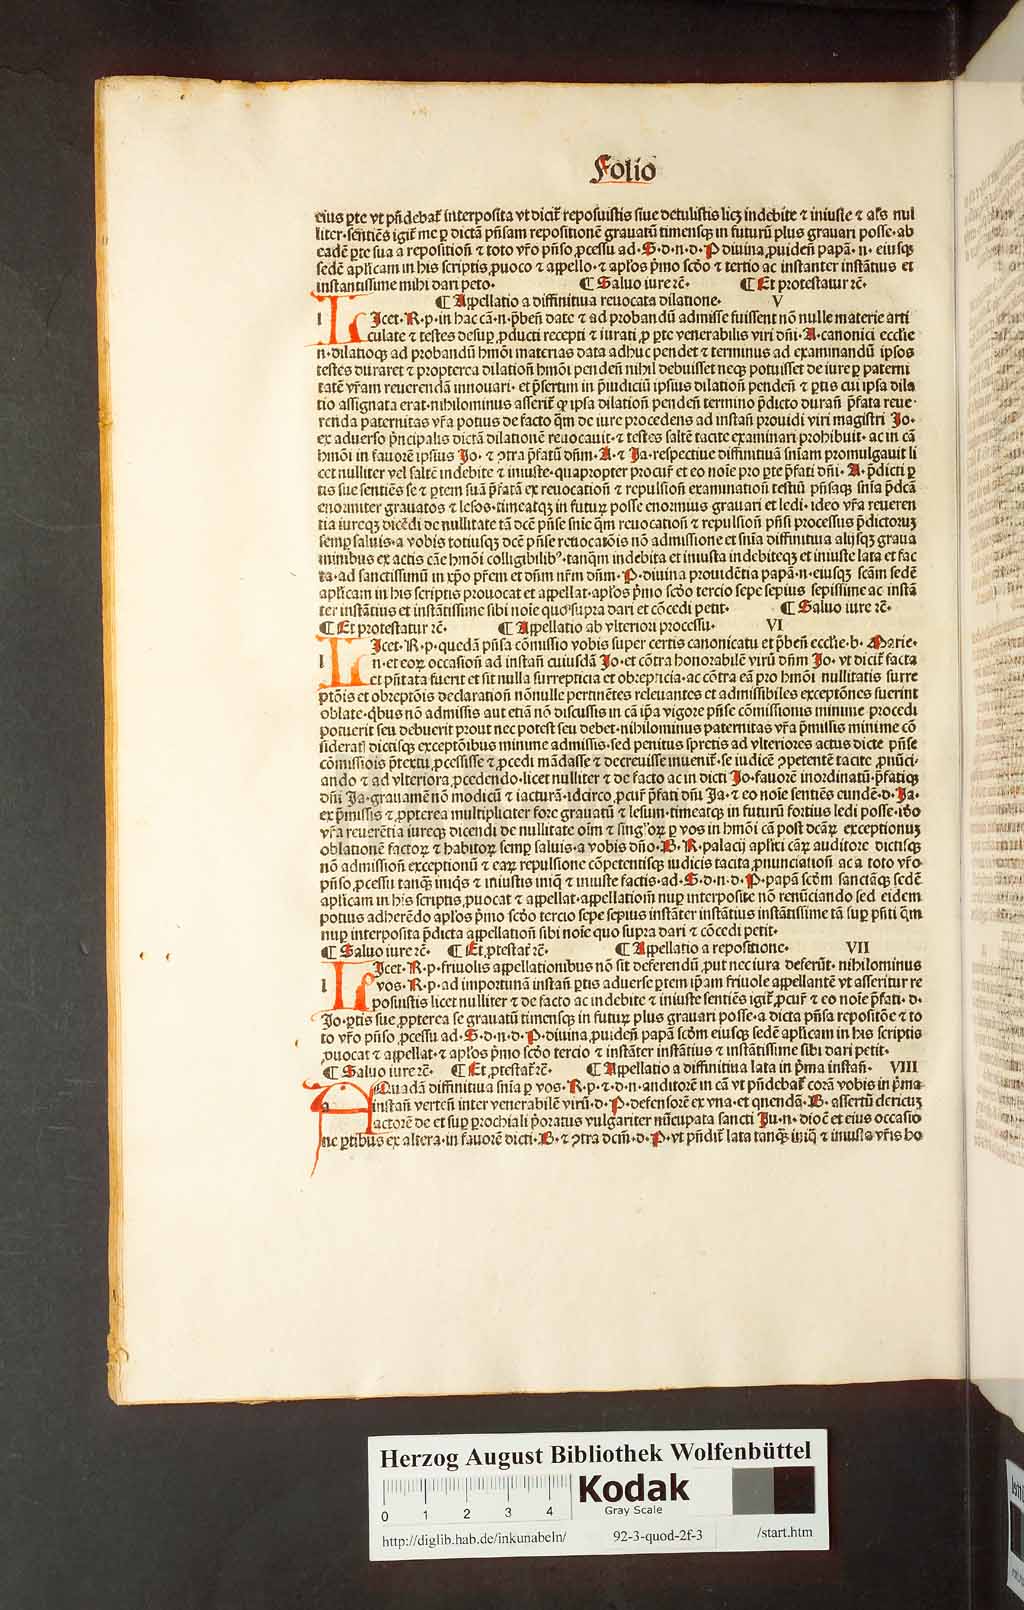 Folio
eius ꝑte vt pñdebat̃ interposita vt dicit̃ reposuistis siue detulistis licꝫ indebite ⁊ iniuste ⁊ al̃s nul
liter·sentiẽs igit̃ me ꝑ dictã pñsam repositionẽ grauatũ timensqꝫ in futurũ plus grauari posse·ab
eadẽ ꝑte sua a repositioñ ⁊ toto vr̃o pñso ꝓcessu ad·S·d·n·d·P diuina ꝓuideñ papã·n·eiusqꝫ
sedẽ apl̃icam in his scriptis ꝓuoco ⁊ appello·⁊ apl̃os p̃mo scd̃o ⁊ tertio ac instanter instãtius et
instantissime mihi dari peto· ¶ Saluo iure ⁊c̃· ¶ Et protestatur ⁊c̃·
¶ Appellatio a diffinitiua reuocata dilatione· V
LIcet·R·p·in hac cã·n·p̃beñ date ⁊ ad probandũ admisse fuissent nõ nulle materie arti
culate ⁊ testes desuꝑ ꝓducti recepti ⁊ iurati ꝓ ꝑte venerabilis viri dñi·A·canonici eccl̃ie
n·dilatioqꝫ ad probandũ hmõi materias data adhuc pendet ⁊ terminus ad examinandũ ipsos
testes duraret ⁊ propterea dilatioñ hmõi pendeñ nihil debuisset neqꝫ potuisset de iure ꝑ paterni
tatẽ vr̃am reuerendã innouari·et p̃sertim in p̃iudiciũ ipsius dilatioñ pendeñ ⁊ ꝑtis cui ipsa dila
tio assignata erat·nihilominus asserit̃ ꝙ ipsa dilatioñ pendeñ termino p̃dicto durañ p̃fata reue·
renda paternitas vr̃a potius de facto q̃m de iure procedens ad instañ prouidi viri magistri Jo·
ex aduerso p̃ncipalis dictã dilationẽ reuocauit·⁊ testes saltẽ tacite examinari prohibuit·ac in cã
hmõi in fauorẽ ipsius Jo·⁊ ꝯtra p̃fatũ dñm·A·⁊ Ja·respectiue diffinitiuã sniam promulgauit li
cet nulliter vel saltẽ indebite ⁊ iniuste·quapropter procur̃ et eo noĩe pro ꝑte p̃fati dñi·A·p̃dicti ꝑ
tis sue sentiẽs se ⁊ ꝑtem suã p̃fatã ex reuocatioñ ⁊ repulsioñ examinatioñ testiũ pñsaqꝫ snia p̃dcã
enormiter grauatos ⁊ lesos·timeatqꝫ in futuꝝ posse enormius grauari et ledi·ideo vr̃a reueren
tia iureqꝫ dicẽdi de nullitate tã dcẽ pñse snie q̃m reuocatioñ ⁊ repulsioñ pñsi processus p̃dictoruꝫ
semꝑ saluis·a vobis totiusqꝫ dcẽ pñse reuocatõis nõ admissione et snia diffinitiua alijsqꝫ graua
minibus ex actis cãe hmõi colligibilibꝰ·tanq̃m indebita et iniusta indebiteqꝫ et iniuste lata et fac
ta·ad sanctissimũ in xp̃o pr̃em et dñm nr̃m dñm·P·diuina prouidẽtia papã·n·eiusqꝫ scãm sedẽ
apl̃icam in his scriptis prouocat et appellat·apl̃os p̃mo scd̃o tercio sepe sepius sepissime ac instã
ter instãtius et instãtissime sibi noĩe quo supra dari et cõcedi petit· ¶ Saluo iure ⁊c̃·
¶ Et protestatur ⁊c̃· ¶ Appellatio ab vlteriori processu· VI
LIcet·R·p·quedã pñsa cõmissio vobis super certis canonicatu et p̃beñ eccl̃ie·b·Marie·
n·et eoꝝ occasioñ ad instañ cuiusdã Jo·et cõtra honorabilẽ virũ dñm Jo·vt dicit̃ facta
et pñtata fuerit et sit nulla surrepticia et obrepticia·ac cõtra eã pro hmõi nullitatis surre
ptõis et obreptõis declaratioñ nõnulle pertinẽtes releuantes et admissibiles exceptõnes fuerint
oblate·q̃bus nõ admissis aut etiã nõ discussis in cã ip̃a vigore pñse cõmissionis minime procedi
potuerit seu debuerit prout nec potest seu debet·nihilominus paternitas vr̃a p̃missis minime cõ
siderat̃ dictisqꝫ exceptõibus minime admissis·sed penitus spretis ad vlteriores actus dicte pñse
cõmissiois p̃textu ꝓcessisse ⁊ ꝓcedi mãdasse ⁊ decreuisse inuenit̃·se iudicẽ ꝯpetentẽ tacite ꝓnũci·
ando ⁊ ad vlteriora ꝓcedendo·licet nulliter ⁊ de facto ac in dicti Jo·fauorẽ inordinatũ·p̃fatiqꝫ
dñi Ja·grauamẽ nõ modicũ ⁊ iacturã·idcirco ꝓcur̃ p̃fati dñi Ja·⁊ eo noĩe sentiẽs eundẽ·d·Ja·
ex p̃missis ⁊ ꝓpterea multipliciter fore grauatũ ⁊ lesum·timeatqꝫ in futurũ fortius ledi posse·idõ
vr̃a reuerẽtia iureqꝫ dicendi de nullitate oĩm ⁊ singꝉoꝝ ꝑ vos in hmõi cã post dcãꝝ exceptionuꝫ
oblationẽ factoꝝ ⁊ habitoꝝ semꝑ saluis·a vobis dño·B·R·palacij apl̃ici cãꝝ auditore dictisqꝫ
nõ admissioñ exceptionũ ⁊ eaꝝ repulsione cõpetentisqꝫ iudicis tacita ꝓnunciatioñ ac a toto vr̃o·
pñso ꝓcessu tanqꝫ̃ iniq̃s ⁊ iniustis iniq̃ ⁊ iniuste factis·ad·S·d·n·d·P·papã scd̃m sanctãqꝫ sedẽ
apl̃icam in his scriptis ꝓuocat ⁊ appellat·appellatiom̃ nuꝑ interposite nõ renũciando sed eidem
potius adherẽdo apl̃os p̃mo scd̃o tercio sepe sepius instãter instãtius instãtissime tã suꝑ pñti q̃m
nuꝑ interposita p̃dicta appellatioñ sibi noĩe quo supra dari ⁊ cõcedi petit·
¶ Saluo iure ⁊c̃· ¶ Et ꝓtestat̃ ⁊c̃· ¶ Appellatio a repositione· VII
LIcet·R·p·friuolis appellationibus nõ sit deferendũ ꝓut nec iura deferũt·nihilominus
vos·R·p·ad importunã instañ ꝑtis aduerse ꝑtem ip̃am friuole appellantẽ vt asseritur re
posuistis licet nulliter ⁊ de facto ac indebite ⁊ iniuste sentiẽs igit̃ ꝓcur̃ ⁊ eo noĩe p̃fati·d·
Jo·ꝑtis sue ꝓpterea se grauatũ timensqꝫ in futuꝝ plus grauari posse·a dicta pñsa repositõe ⁊ to
to vr̃o pñso ꝓcessu ad·S·d·n·d·P·diuina ꝓuideñ papã scd̃m eiusqꝫ sedẽ apl̃icam in his scriptis
ꝓuocat ⁊ appellat·⁊ apl̃os p̃mo scd̃o tercio ⁊ instãter instãtius ⁊ instãtissime sibi dari petit·
¶ Saluo iure ⁊c̃· ¶ Et ꝓtestat̃ ⁊c̃· ¶ Appellatio a diffinitiua lata in p̃ma instañ· VIII
A Quadã diffinitiua snia ꝑ vos·R·p·⁊·d·n·anditorẽ in cã vt pñdebat̃ corã vobis in p̃ma
instañ verteñ inter venerabilẽ virũ·d·P·defensorẽ ex vna·et qnendã·B·assertũ clericuꝫ
actorẽ de et suꝑ ꝑrochiali p̃oratus vulgariter nũcupata sancti Ju·n·dioc̃ et eius occasio
ne ꝑtibus ex altera·in fauorẽ dicti·B·⁊ ꝯtra dcm̃·d·P·vt pñdit̃ lata tanqꝫ̃ iniq̃ ⁊ iniusta vr̃is ho
Herzog August Bibliothek Wolfenbüttel
0 1 2 3 4
Kodak
Gray Scale
http://diglib.hab.de/inkunabeln/ 92-3-quod-2f-3 /start.htm